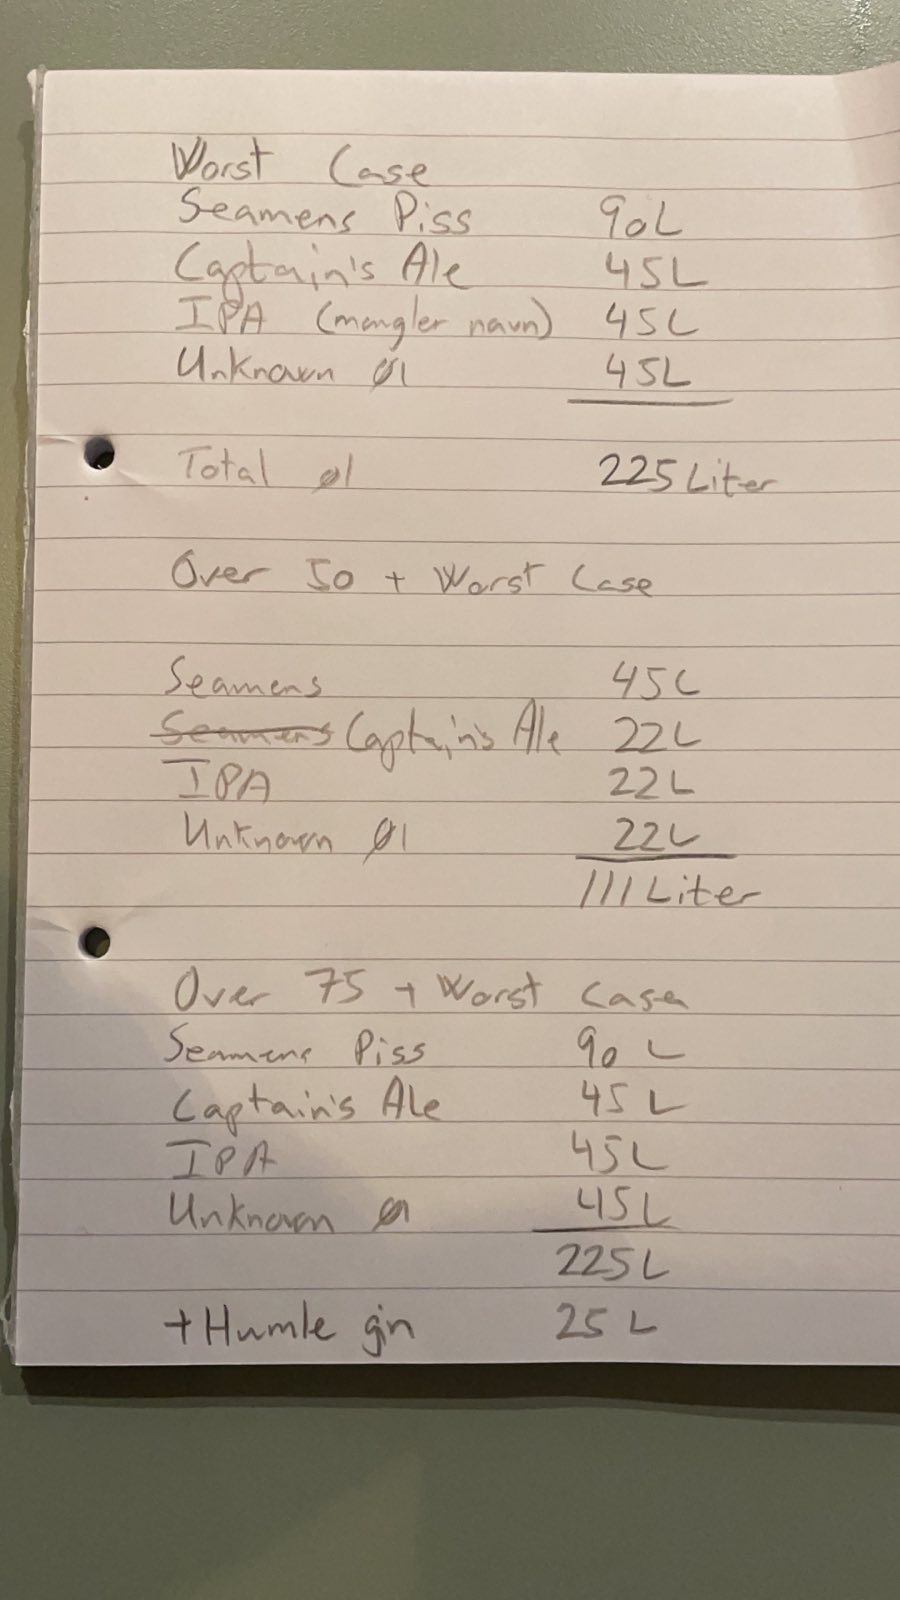 Worst Case
Seamens Piss 90L
Captain's Ale 45L
IPA (mangler navn) 45L
Unknown Øl 45L
Total øl 225 Liter
Over 50 + Worst Case
Seamens 45L
Seamens Captain's Ale 22L
IPA 22L
Unknown Øl 22L
111 Liter
Over 75 + Worst Case
Seamens Piss 90 L
Captain's Ale 45 L
IPA 45L
Unknown øl 45L
225L
+ Humle gin 25 L